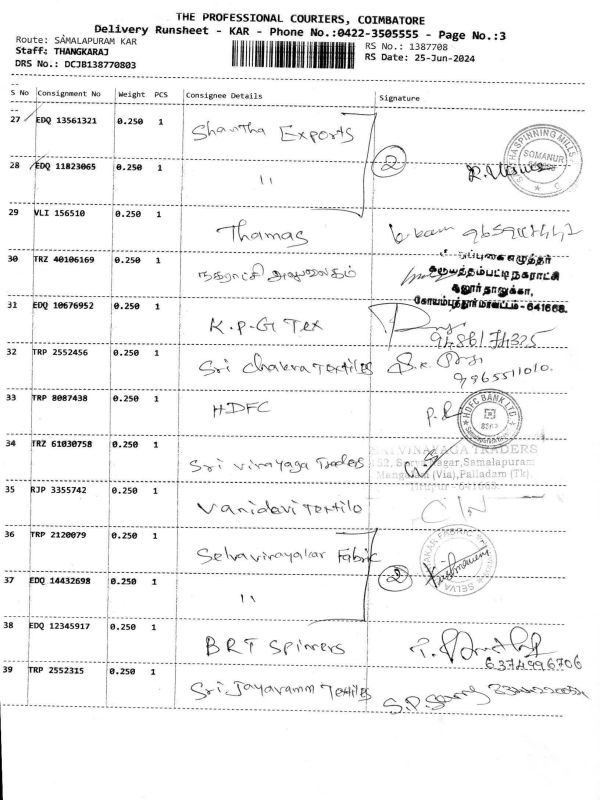 THE PROFESSIONAL COURIERS, COIMBATORE
Delivery Runsheet - KAR - Phone No.:0422-3505555 - Page No.:3
Route: SAMALAPURAM KAR
RS No.: 1387708
Staff: THANGKARAJ
RS Date: 25-Jun-2024
DRS No.: DCJB138770803
S No Consignment No Weight PCS Consignee Details Signature
27 EDQ 13561321 0.250 1 Shantha Exports
28 EDQ 11823065 0.250 1 11 2
SPINNING MILLS
SOMANUR
29 VLI 156510 0.250 1 Thamas
30 TRZ 40106169 0.250 1 நகராட்சி அலுவலகம்
கோயம்புத்தூர் மாவட்டம் - 641668.
31 EDQ 10676952 0.250 1 K.P.G Tex 9486174325
32 TRP 2552456 0.250 1 Sri chakra Textiles 9965511010.
33 TRP 8087438 0.250 1 HDFC
HDFC BANK LTD
34 TRZ 61030758 0.250 1 Sri Vinayaga Traders
VINAYAGA TRADERS
Nagar, Samalapuram
(Via), Palladam (Tk)
35 RJP 3355742 0.250 1 Vanidevi Textile C/N
36 TRP 2120079 0.250 1 Selvavinayakar Fabric
37 EDQ 14432698 0.250 1 11 2
38 EDQ 12345917 0.250 1 BRT Spinners
6374996706
39 TRP 2552315 0.250 1 Sri Jayavarmm Textiles